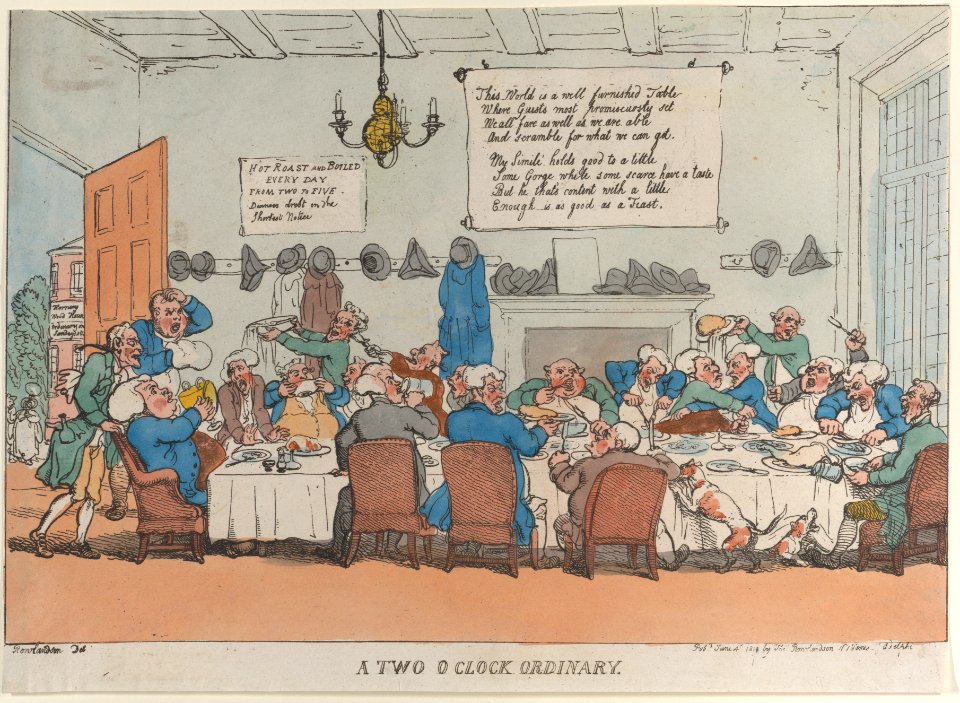 This World is a well furnished Table
Where Guests most promiscuously set
We all fare as well as we are able
And scramble for what we can get.
My Simile holds good to a little
Some Gorge where some scarce have a taste
But he that's content with a little
Enough is as good as a Feast.
HOT ROAST AND BOILED
EVERY DAY
FROM TWO TO FIVE.
Dinners drest in the
Shortest Notice
Hornsey
Wood House
ordinary on
Sundays
Rowlandson Del
Pubd June 4 by Tho Rowlandson N 1 James Adelphi
A TWO O CLOCK ORDINARY.